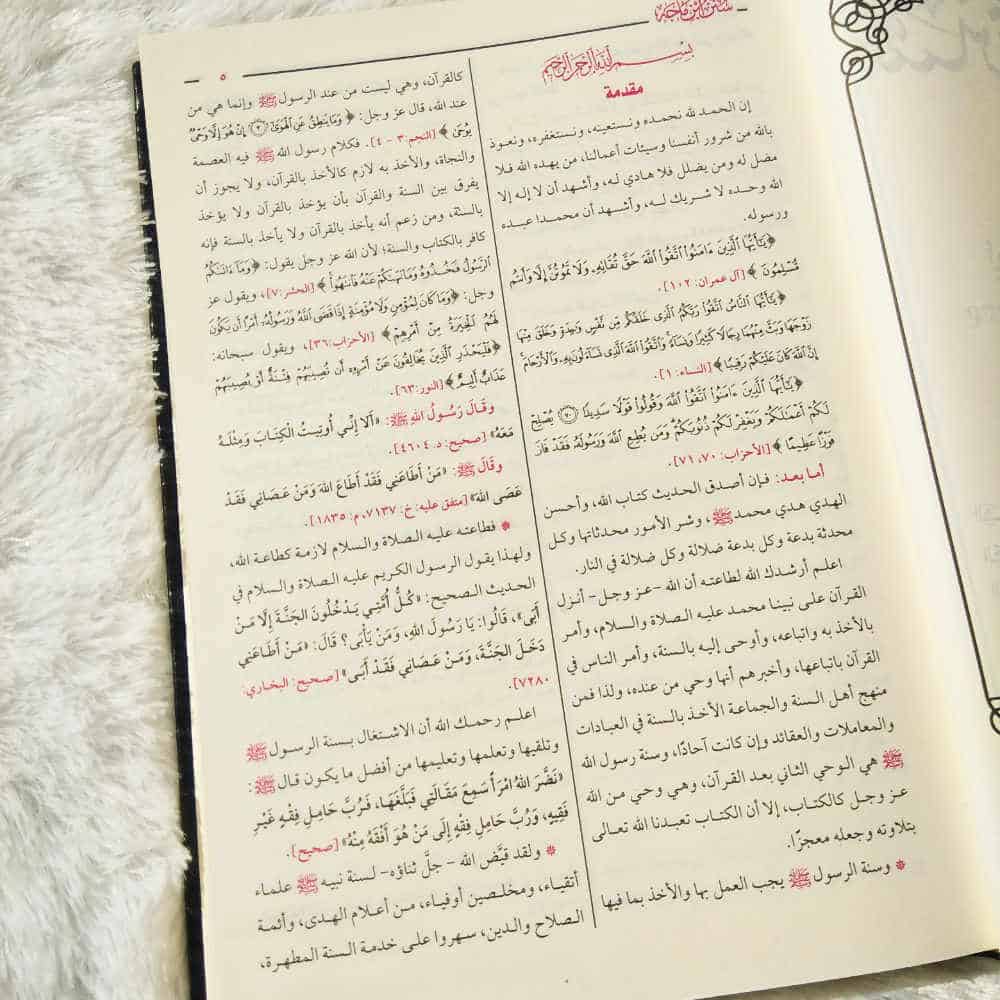 سنن ابن ماجه
٥
بسم الله الرحمن الرحيم
مقدمة
إن الحمد لله نحمده ونستعينه، ونستغفره، ونعوذ
بالله من شرور أنفسنا وسيئات أعمالنا، من يهده الله فلا
مضل له ومن يضلل فلا هادي له، وأشهد أن لا إله إلا
الله وحده لا شريك له، وأشهد أن محمدا عبده
ورسوله.
﴿يَٰٓأَيُّهَا ٱلَّذِينَ ءَامَنُوا۟ ٱتَّقُوا۟ ٱللَّهَ حَقَّ تُقَاتِهِۦ وَلَا تَمُوتُنَّ إِلَّا وَأَنتُم
مُّسْلِمُونَ﴾ [آل عمران: ١٠٢].
﴿يَٰٓأَيُّهَا ٱلنَّاسُ ٱتَّقُوا۟ رَبَّكُمُ ٱلَّذِى خَلَقَكُم مِّن نَّفْسٍ وَٰحِدَةٍ وَخَلَقَ مِنْهَا
زَوْجَهَا وَبَثَّ مِنْهُمَا رِجَالًا كَثِيرًا وَنِسَآءً وَٱتَّقُوا۟ ٱللَّهَ ٱلَّذِى تَسَآءَلُونَ بِهِۦ وَٱلْأَرْحَامَ
إِنَّ ٱللَّهَ كَانَ عَلَيْكُمْ رَقِيبًا﴾ [النساء: ١].
﴿يَٰٓأَيُّهَا ٱلَّذِينَ ءَامَنُوا۟ ٱتَّقُوا۟ ٱللَّهَ وَقُولُوا۟ قَوْلًا سَدِيدًا ۝٧٠ يُصْلِحْ
لَكُمْ أَعْمَٰلَكُمْ وَيَغْفِرْ لَكُمْ ذُنُوبَكُمْ وَمَن يُطِعِ ٱللَّهَ وَرَسُولَهُۥ فَقَدْ فَازَ
فَوْزًا عَظِيمًا﴾ [الأحزاب: ٧٠، ٧١].
أما بعد: فإن أصدق الحديث كتاب الله، وأحسن
الهدي هدي محمد ﷺ، وشر الأمور محدثاتها وكل
محدثة بدعة وكل بدعة ضلالة وكل ضلالة في النار.
اعلم أرشدك الله لطاعته أن الله -عز وجل- أنزل
القرآن على نبينا محمد عليه الصلاة والسلام، وأمر
بالأخذ به واتباعه، وأوحى إليه بالسنة، وأمر الناس في
القرآن باتباعها، وأخبرهم أنها وحي من عنده، ولذا فمن
منهج أهل السنة والجماعة الأخذ بالسنة في العبادات
والمعاملات والعقائد وإن كانت آحادًا، وسنة رسول الله
ﷺ هي الوحي الثاني بعد القرآن، وهي وحي من الله
عز وجل كالكتاب، إلا أن الكتاب تعبدنا الله تعالى
بتلاوته وجعله معجزًا.
* وسنة الرسول ﷺ يجب العمل بها والأخذ بما فيها
كالقرآن، وهي ليست من عند الرسول ﷺ وإنما هي من
عند الله، قال عز وجل: ﴿وَمَا يَنطِقُ عَنِ ٱلْهَوَىٰٓ ۝٣ إِنْ هُوَ إِلَّا وَحْىٌ
يُوحَىٰ﴾ [النجم: ٣ - ٤]. فكلام رسول الله ﷺ فيه العصمة
والنجاة، والأخذ به لازم كالأخذ بالقرآن، ولا يجوز أن
يفرق بين السنة والقرآن بأن يؤخذ بالقرآن ولا يؤخذ
بالسنة، ومن زعم أنه يأخذ بالقرآن ولا يأخذ بالسنة فإنه
كافر بالكتاب والسنة؛ لأن الله عز وجل يقول: ﴿وَمَآ ءَاتَىٰكُمُ
ٱلرَّسُولُ فَخُذُوهُ وَمَا نَهَىٰكُمْ عَنْهُ فَٱنتَهُوا۟﴾ [الحشر: ٧]، ويقول عز
وجل: ﴿وَمَا كَانَ لِمُؤْمِنٍ وَلَا مُؤْمِنَةٍ إِذَا قَضَى ٱللَّهُ وَرَسُولُهُۥٓ أَمْرًا أَن يَكُونَ
لَهُمُ ٱلْخِيَرَةُ مِنْ أَمْرِهِمْ﴾ [الأحزاب: ٣٦]، ويقول سبحانه:
﴿فَلْيَحْذَرِ ٱلَّذِينَ يُخَالِفُونَ عَنْ أَمْرِهِۦٓ أَن تُصِيبَهُمْ فِتْنَةٌ أَوْ يُصِيبَهُمْ
عَذَابٌ أَلِيمٌ﴾ [النور: ٦٣].
وقَالَ رَسُولُ اللهِ ﷺ: «أَلا إنِّي أُوتِيتُ الْكِتَابَ وَمِثْلَهُ
مَعَهُ» [صحيح: د: ٤٦٠٤].
وقَالَ ﷺ: «مَنْ أطَاعَنِي فَقَدْ أَطَاعَ اللهَ وَمَنْ عَصَانِي فَقَدْ
عَصَى اللهَ» [متفق عليه: خ: ٧١٣٧، م: ١٨٣٥].
* فطاعته عليه الصلاة والسلام لازمة كطاعة الله،
ولهذا يقول الرسول الكريم عليه الصلاة والسلام في
الحديث الصحيح: «كُلُّ أُمَّتِي يَدْخُلُونَ الجَنَّةَ إِلَّا مَنْ
أَبَى»، قَالُوا: يَا رَسُولَ اللهِ، وَمَنْ يَأْبَى؟ قَالَ: «مَنْ أَطَاعَنِي
دَخَلَ الجَنَّةَ، وَمَنْ عَصَانِي فَقَدْ أَبَى» [صحيح: البخاري:
٧٢٨٠].
اعلم رحمك الله أن الاشتغال بسنة الرسول ﷺ
وتلقيها وتعلمها وتعليمها من أفضل ما يكون قال ﷺ:
«نَضَّرَ اللهُ امْرَأً سَمِعَ مَقَالَتِي فَبَلَّغَهَا، فَرُبَّ حَامِلِ فِقْهٍ غَيْرِ
فَقِيهٍ، وَرُبَّ حَامِلِ فِقْهٍ إِلَى مَنْ هُوَ أَفْقَهُ مِنْهُ» [صحيح].
* ولقد قيَّض الله -جلَّ ثناؤه- لسنة نبيه ﷺ علماء
أتقياء، ومخلصين أوفياء، من أعلام الهدى، وأئمة
الصلاح والدين، سهروا على خدمة السنة المطهرة،